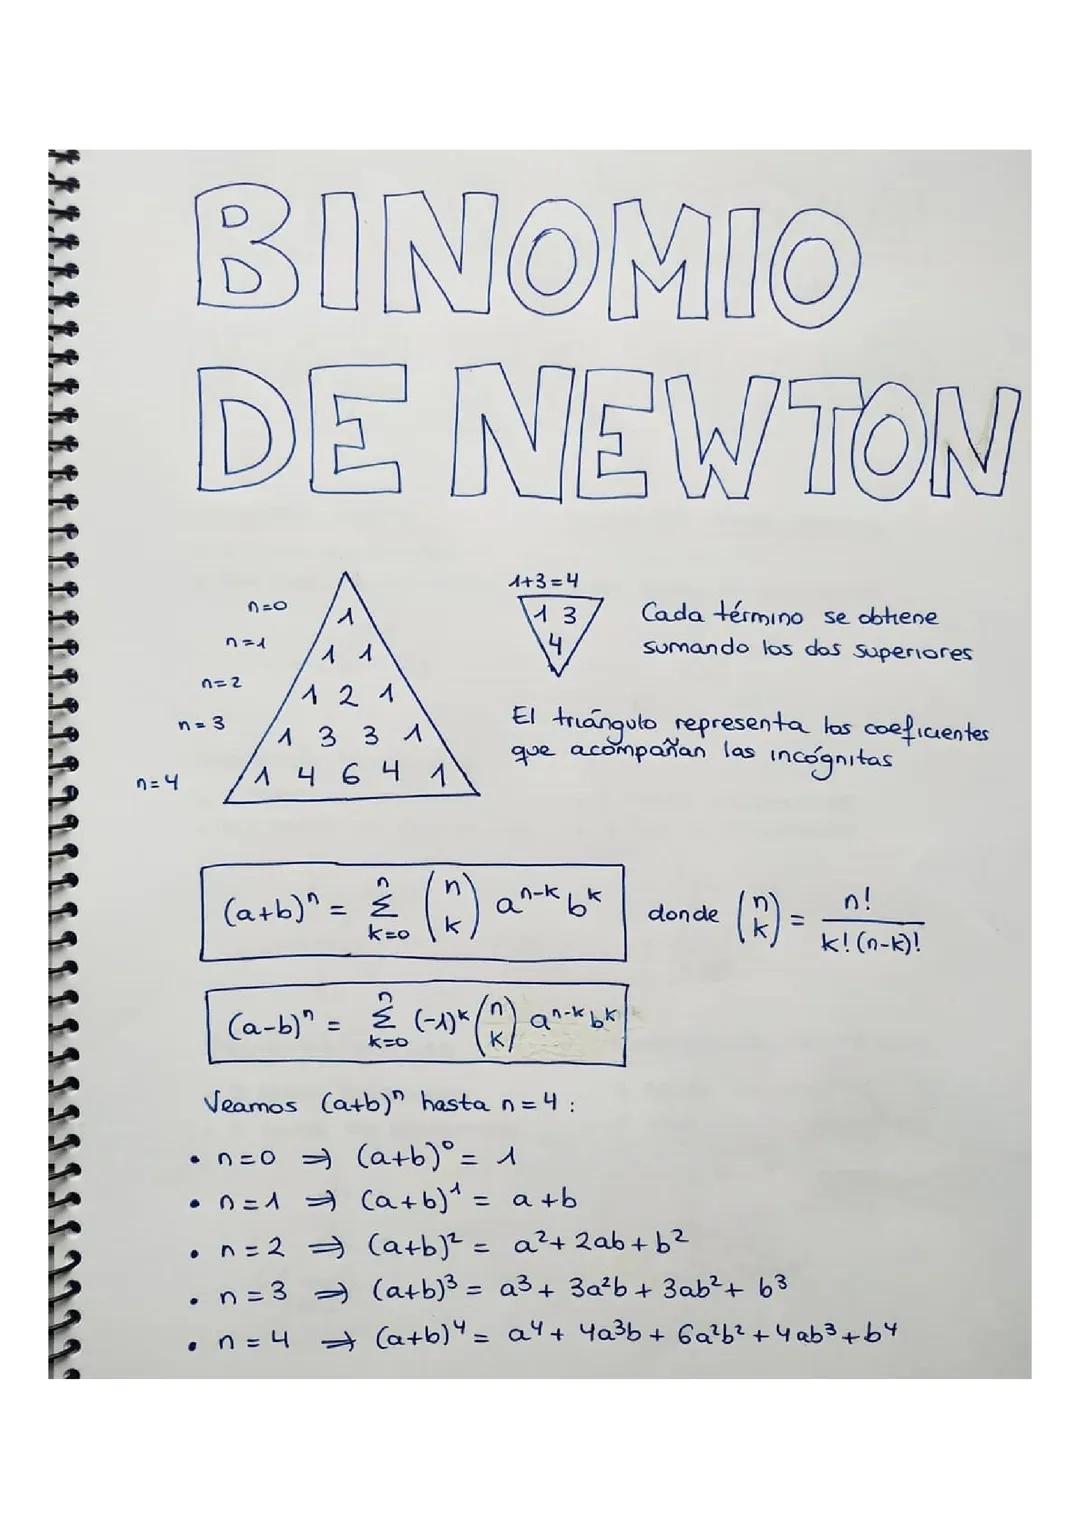 BINOMIO
DE NEWTON
n=0 1
n=1 1 1
n=2 1 2 1
n=3 1 3 3 1
n=4 1 4 6 4 1
1+3=4
1 3
4
Cada término se obtiene
sumando los dos superiores
El triángulo representa los coeficientes
que acompañan las incógnitas
(a+b)ⁿ = Σ_{k=0}^{n} (n k) aⁿ⁻ᵏ bᵏ donde (n k) = n! / k!(n-k)!
(a-b)ⁿ = Σ_{k=0}^{n} (-1)ᵏ (n k) aⁿ⁻ᵏ bᵏ
Veamos (a+b)ⁿ hasta n=4:
• n=0 ⇒ (a+b)⁰ = 1
• n=1 ⇒ (a+b)¹ = a+b
• n=2 ⇒ (a+b)² = a²+2ab+b²
• n=3 ⇒ (a+b)³ = a³+3a²b+3ab²+b³
• n=4 ⇒ (a+b)⁴ = a⁴+4a³b+6a²b²+4ab³+b⁴